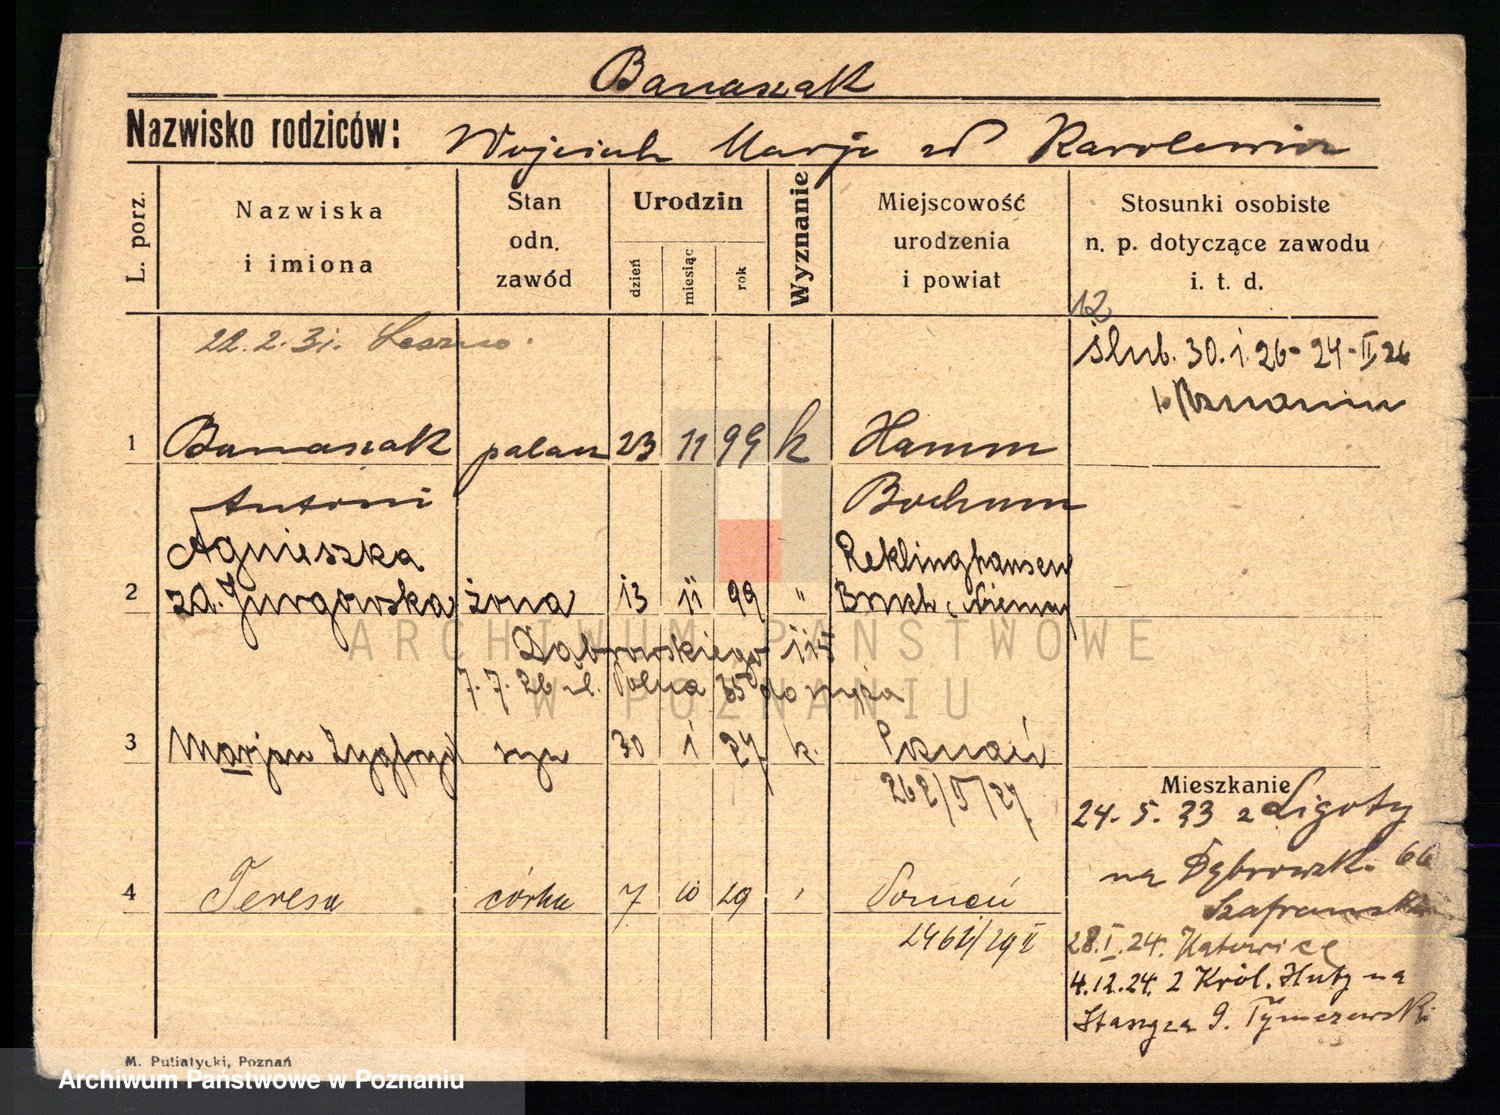 Banaszak
Nazwisko rodziców: Wojciech Marja zd Karolewicz
L. porz.
Nazwiska
i imiona
Stan
odn.
zawód
Urodzin
dzień
miesiąc
rok
Wyznanie
Miejscowość
urodzenia
i powiat
Stosunki osobiste
n. p. dotyczące zawodu
i. t. d.
12
22.2.31. Leszno.
ślub. 30.1.26 - 24-II 26
w Poznaniu
1 Banaszak palacz 23 11 99 k Hamm
Antoni Bochum
Agnieszka Reklinghausen
2 zd. Jurgowska żona 13 11 99 " Niemcy
Dąbrowskiego 115
7.7.26 ul. Polna 35 do szypra
3 Marjan Zygfryd syn 30 1 27 k. Poznań
262/II/27.
Mieszkanie
24. 5. 33 z Ligoty
na Dąbrowsk. 66
Szafranski
4 Teresa córka 7 10 29 " Poznań
2461/29 II
28.I.24. Katowice
4.12.24. z Król. Huty na
Staszyca 9. Tymczewski
M. Putiatycki, Poznań
ARCHIWUM PAŃSTWOWE
W POZNANIU
Archiwum Państwowe w Poznaniu